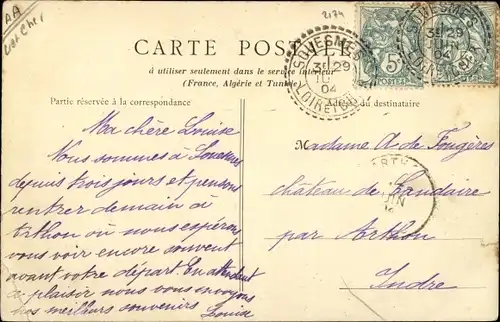 AA
2174
CARTE POSTALE
à utiliser seulement dans le service intérieur
(France, Algérie et Tunisie)
Partie réservée à la correspondance
du destinataire
SOUESMES
3E 29
04
LOIR ET CHER
5c
POSTES
SOUESMES
3E 29
JUIN
04
Ma chère Louise
Nous sommes à Souesmes
depuis trois jours et pensons
rentrer demain à
Arthon où nous espérons
vous voir encore souvent
avant votre départ. En attendant
ce plaisir nous vous envoyons
nos meilleurs souvenirs
Louise
Madame A de Fougères
château de
par Arthon
Indre
JUIN